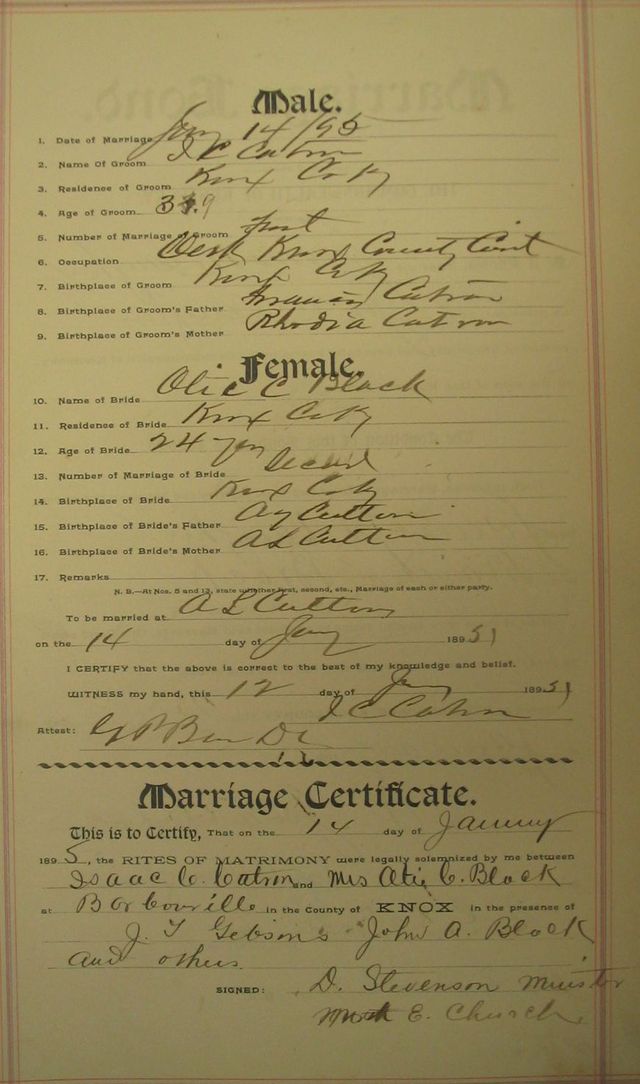 Male.
1. Date of Marriage Jany 14/95
2. Name Of Groom I C Catron
3. Residence of Groom Knox Co Ky
4. Age of Groom 39
5. Number of Marriage of Groom first
6. Occupation Clerk Knox County Court
7. Birthplace of Groom Knox Co Ky
8. Birthplace of Groom's Father Francis Catron
9. Birthplace of Groom's Mother Rhodia Catron
Female.
10. Name of Bride Otie C Black
11. Residence of Bride Knox Co Ky
12. Age of Bride 24 yrs
13. Number of Marriage of Bride Second
14. Birthplace of Bride Knox Co Ky
15. Birthplace of Bride's Father Culton
16. Birthplace of Bride's Mother A L Culton
17. Remarks
N. B.—At Nos. 5 and 13, state whether first, second, etc., Marriage of each or either party.
To be married at A L Culton
on the 14 day of Jany 1895
I CERTIFY that the above is correct to the best of my knowledge and belief.
WITNESS my hand, this 12 day of Jany 1895
I C Catron
Attest:
Marriage Certificate.
This is to Certify, That on the 14 day of January
1895, the RITES OF MATRIMONY were legally solemnized by me between
Isaac C. Catron and Mrs Otie C. Black
at Barbourville in the County of KNOX in the presence of
J. T Gibson John A. Black
and others
SIGNED: D. Stevenson Minister
E. Church